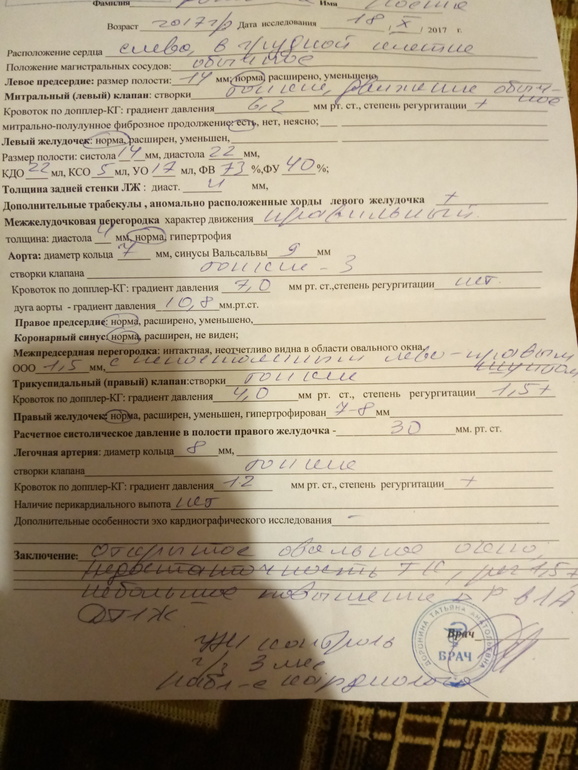 Фамилия Имя
Возраст 2017 гр Дата исследования 18 X 2017 г.
Расположение сердца слева, в грудной клетке
Положение магистральных сосудов: обычное
Левое предсердие: размер полости: 14 мм; норма, расширено, уменьшено,
Митральный (левый) клапан: створки тонкие, движение обычное
Кровоток по допплер-КГ: градиент давления 6,2 мм рт. ст., степень регургитации +
митрально-полулунное фиброзное продолжение: есть, нет, неясно;
Левый желудочек: норма, расширен, уменьшен,
Размер полости: систола 14 мм, диастола 22 мм,
КДО 22 мл, КСО 5 мл, УО 17 мл, ФВ 73 %, ФУ 40 %;
Толщина задней стенки ЛЖ : диаст. 4 мм,
Дополнительные трабекулы , аномально расположенные хорды левого желудочка +
Межжелудочковая перегородка характер движения правильный
толщина: диастола 4 мм, норма, гипертрофия
Аорта: диаметр кольца 7 мм, синусы Вальсальвы 9 мм
створки клапана тонкие - 3
Кровоток по допплер-КГ: градиент давления 7,0 мм рт. ст.,степень регургитации нет
дуга аорты - градиент давления 10,8 мм.рт.ст.
Правое предсердие: норма, расширено, уменьшено,
Коронарный синус: норма, расширен, не виден;
Межпредсердная перегородка: интактная, неотчетливо видна в области овального окна,
ООО 1,5 мм, с непостоянным лево-правым шунтом
Трикуспидальный (правый) клапан:створки тонкие
Кровоток по допплер-КГ: градиент давления 4,0 мм рт. ст., степень регургитации 1,5+
Правый желудочек: норма, расширен, уменьшен, гипертрофирован 7-8 мм
Расчетное систолическое давление в полости правого желудочка - 30 мм. рт. ст.
Легочная артерия: диаметр кольца 8 мм,
створки клапана тонкие
Кровоток по допплер-КГ: градиент давления 12 мм рт. ст., степень регургитации +
Наличие перикардиального выпота нет
Дополнительные особенности эхо кардиографического исследования -
Заключение: открытое овальное окно,
недостаточность ТК, рег 1,5+
небольшое повышение ΔР в ЛА
ДТЛЖ
Врач
ДОРОНИНА ТАТЬЯНА АНАТОЛЬЕВНА
ВРАЧ
УЗИ контроль
ч/з 3 мес